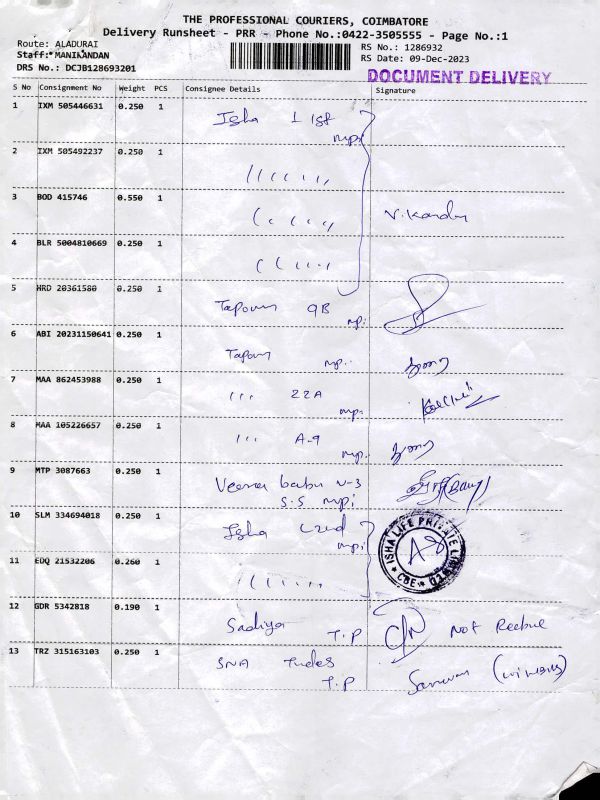 THE PROFESSIONAL COURIERS, COIMBATORE
Delivery Runsheet - PRR - Phone No.:0422-3505555 - Page No.:1
Route: ALADURAI
Staff:*MANIKANDAN
DRS No.: DCJB128693201
RS No.: 1286932
RS Date: 09-Dec-2023
DOCUMENT DELIVERY
S No Consignment No Weight PCS Consignee Details Signature
1 IXM 505446631 0.250 1 Isha
2 IXM 505492237 0.250 1
3 BOD 415746 0.550 1
4 BLR 5004810669 0.250 1
5 HRD 20361580 0.250 1 9B
6 ABI 20231150641 0.250 1
7 MAA 862453988 0.250 1 22A
8 MAA 105226657 0.250 1 A-9
9 MTP 3087663 0.250 1 Veena babu V-3
S.S
10 SLM 334694018 0.250 1 Isha
ISHA LIFE PRIVATE LIMITED * CBE *
11 EDQ 21532206 0.260 1
12 GDR 5342818 0.190 1 Sadiya T.P Not
13 TRZ 315163103 0.250 1 SNA T.P